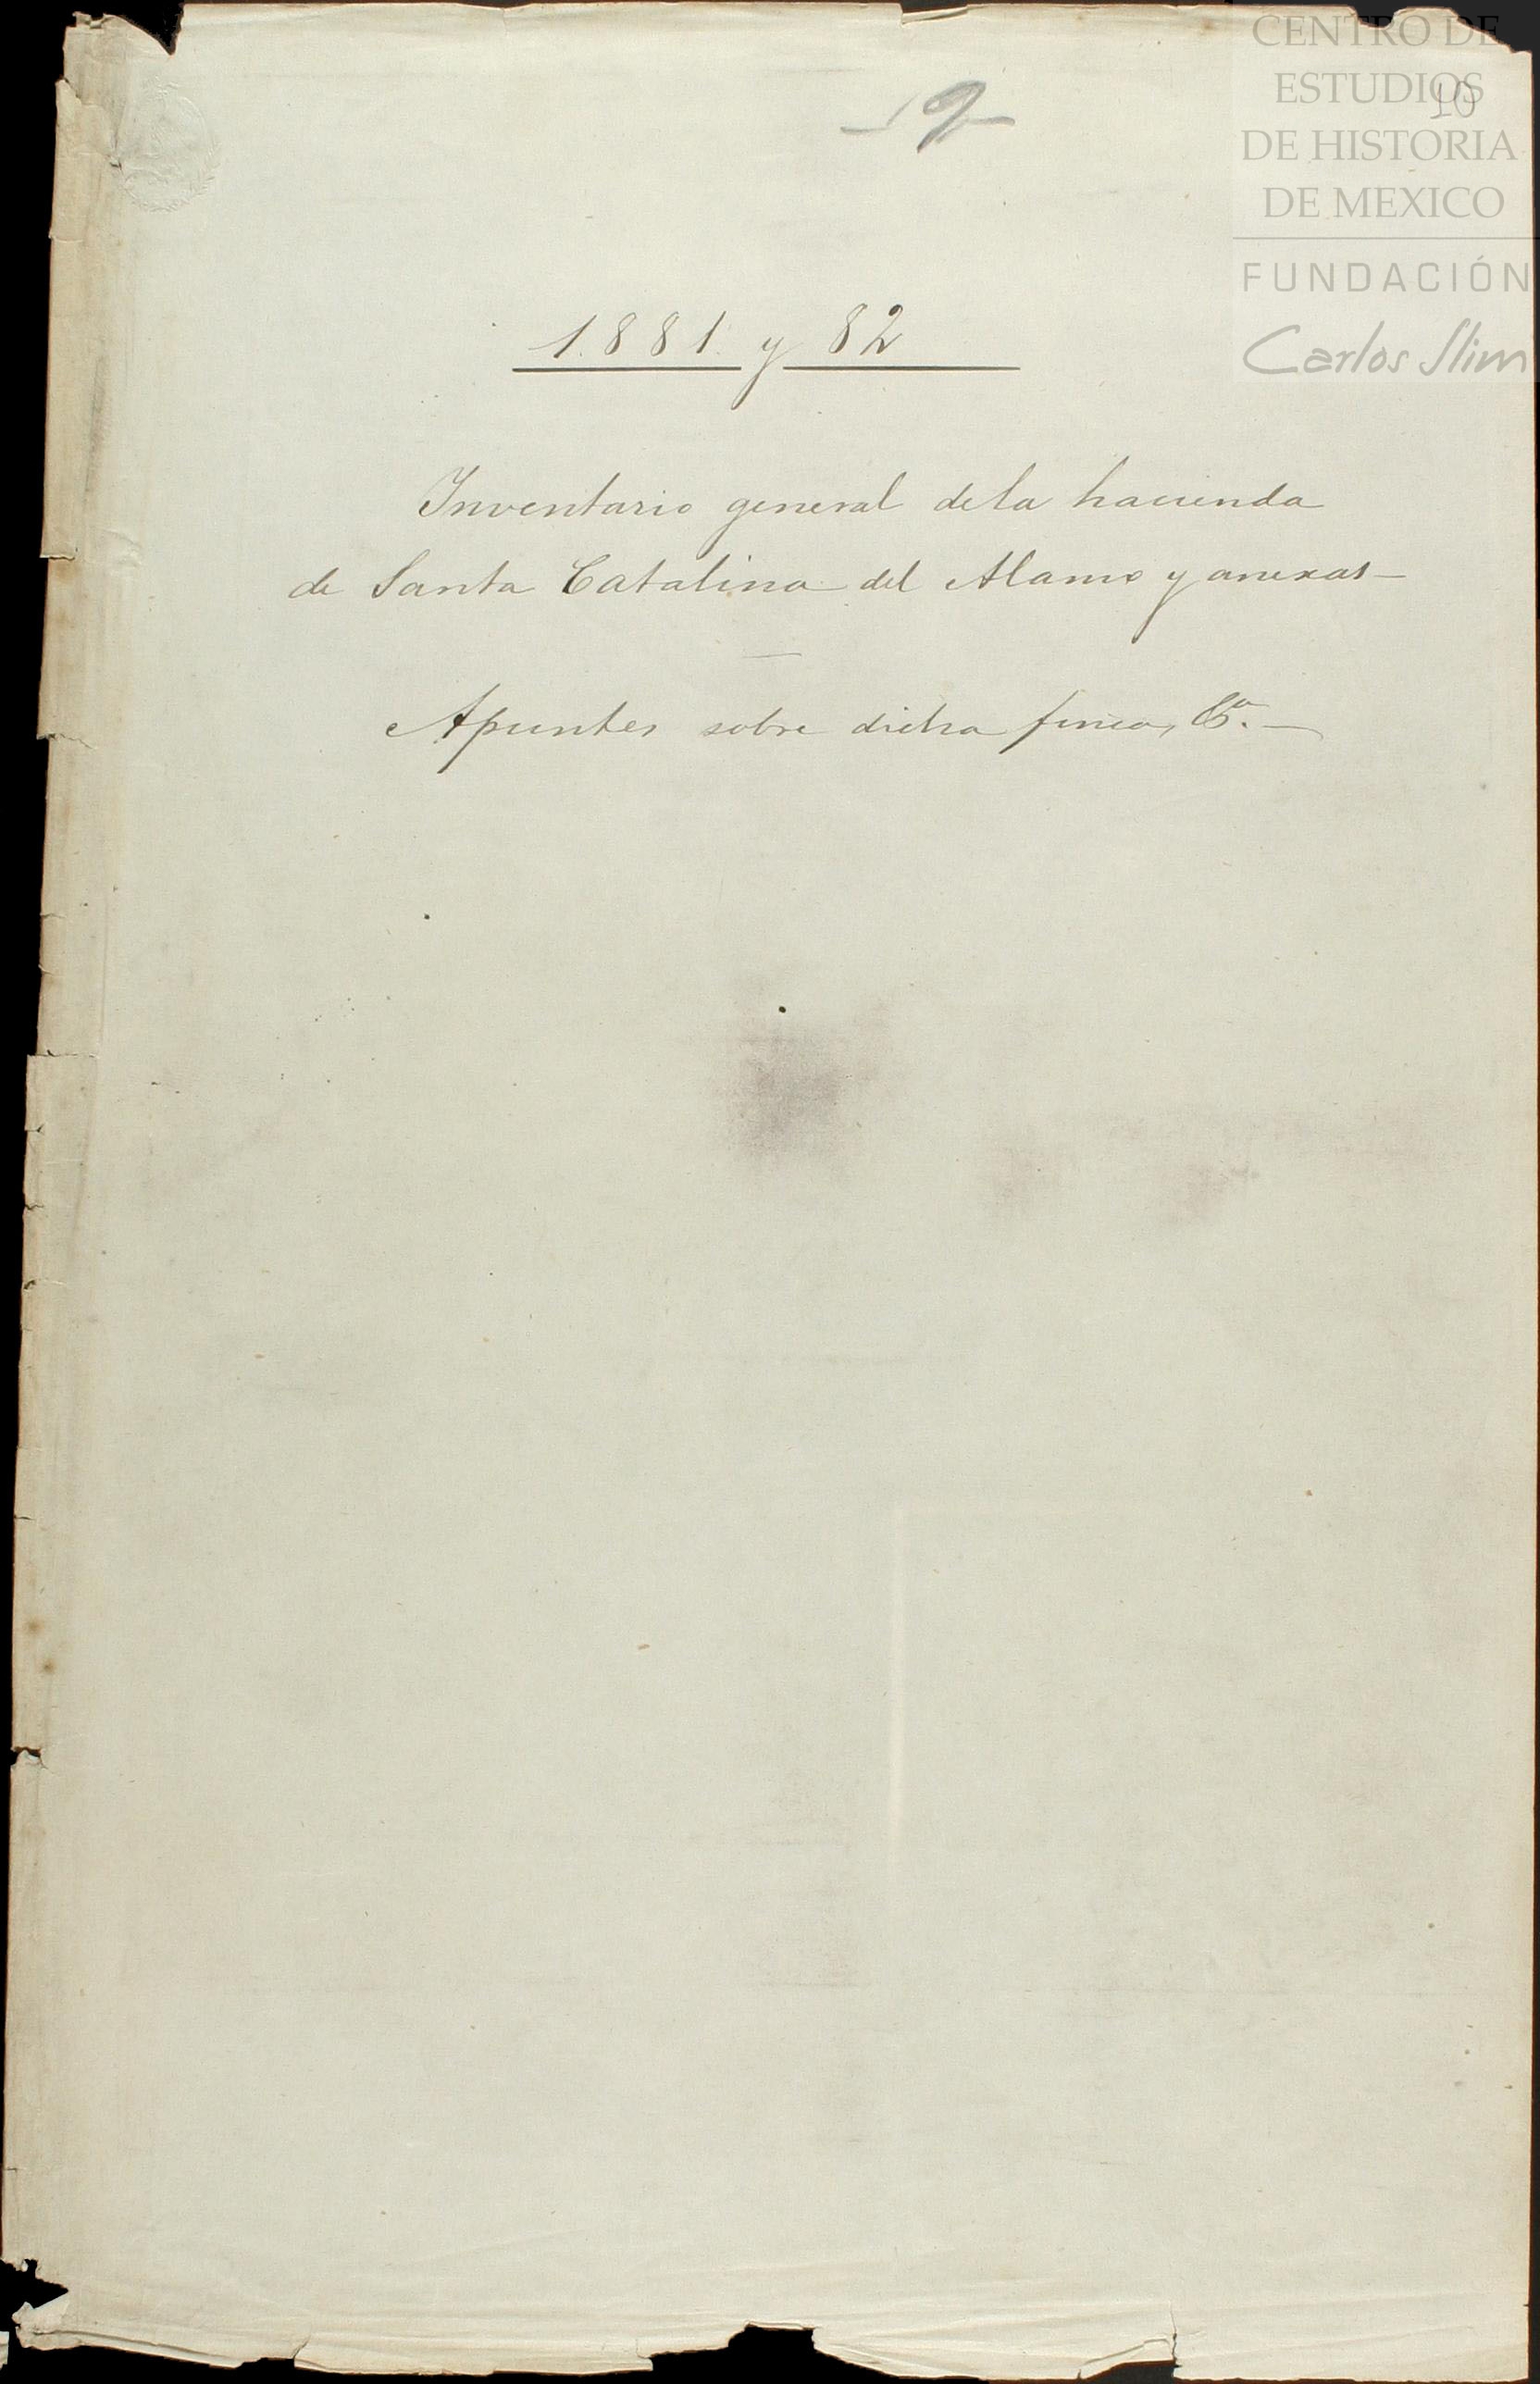 CENTRO DE
ESTUDIOS
DE HISTORIA
DE MEXICO
FUNDACIÓN
Carlos Slim
10
1881 y 82
Inventario general de la hacienda
de Santa Catalina del Alamo y anexas—
Apuntes sobre dicha finca,